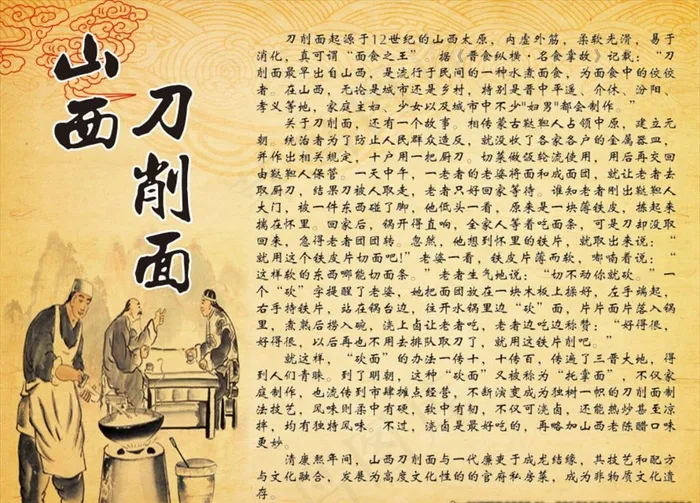 山西
刀削面
刀削面起源于12世纪的山西太原，内虚外筋，柔软光滑，易于
消化，真可谓“面食之王” 据《晋食纵横·名食掌故》记载：“刀
削面最早出自山西，是流行于民间的一种水煮面食，为面食中的佼佼
者。在山西，无论是城市还是乡村，特别是晋中平遥、介休、汾阳、
孝义等地，家庭主妇、少女以及城市中不少"妇男"都会制作。”
关于刀削面，还有一个故事。相传蒙古鞑靼人占领中原，建立元
朝。统治者为了防止人民群众造反，就没收了家家户户的金属器皿，
并作出相关规定，十户用一把厨刀。切菜做饭轮流使用，用后再交回
由鞑靼人保管。一天中午，一老者的老婆将面和成面团，就让老者去
取厨刀，结果刀被人取走，老者只好回家等待。谁知老者刚出鞑靼人
大门，被一件东西碰了脚，他低头一看，原来是一块薄铁皮，拣起来
揣在怀里。回家后，锅开得直响，全家人等着吃面条，可是刀却没取
回来，急得老者团团转。忽然，他想到怀里的铁片，就取出来说：“
就用这个铁皮片切面吧!”老婆一看，铁皮片薄而软，嘟喃着说：“
这样软的东西哪能切面条。”老者生气地说：“切不动你就砍。”一
个“砍”字提醒了老婆，她把面团放在一块木板上揉好，左手端起，
右手持铁片，站在锅台边，往开水锅里边“砍”面，片片面片落入锅
里，煮熟后捞入碗，浇上卤让老者吃，老者边吃边称赞：“好得很，
好得很，以后再也不用去排队取刀了，就用这铁片削吧。”
就这样，“砍面”的办法一传十，十传百，传遍了三晋大地，得
到人们青睐。到了明朝，这种“砍面”又被称为“托掌面”，不仅家
庭制作，也流传到市肆摊点经营，不断演变成为独树一帜的刀削面制
法技艺，风味则柔中有硬，软中有韧，不仅可浇卤，还能热炒甚至凉
拌，均有独持风味。不过，浇卤是最好吃的，再略加山西老陈醋口味
更妙。
清康熙年间，山西刀削面与一代廉吏于成龙结缘，其技艺和配方
与文化融合，发展为高度文化性的的官府私房菜，成为非物质文化遗
存。